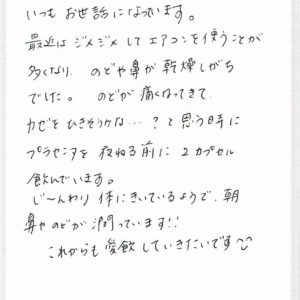 いつも お世話になっています。
最近は ジメジメして エアコンを使うことが
多くなり、 のどや鼻が 乾燥しがち
でした。 のどが 痛くなってきて
カゼをひきそうかな…？と思う時に
プラセンタを 夜ねる前に 2カプセル
飲んでいます。
じ〜んわり 体にきいているようで、朝
鼻やのどが 潤っています!!
これからも愛飲していきたいです